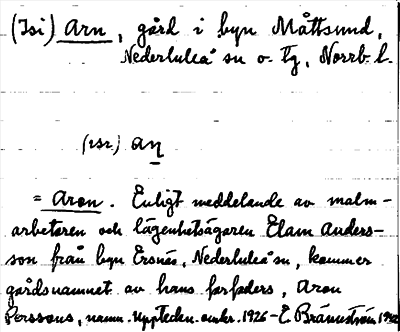 (Isi) Arn, gård i byn Måttsund,
Nederluleå sn o. Tg, Norrb. l.
(isi) aṉ
= Aron. Enligt meddelande av malm-
arbetaren och lägenhetsägaren Elam Anders-
son från byn Ersnäs, Nederluleå sn, kommer
gårdsnamnet av hans farfaders, Aron
Perssons, namn. Uppteckn. omkr. 1926 – E. Brännström 1942